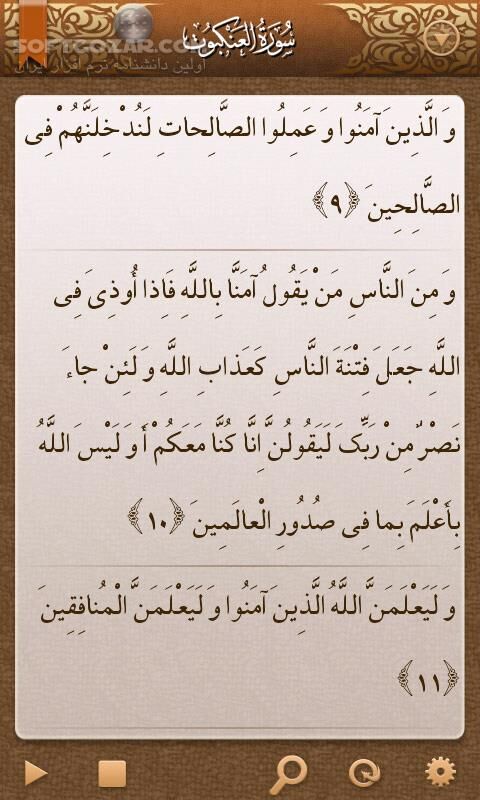 SOFTGOZAR.COM
اولین دانشنامه نرم افزار ایران
سُورَةُ العَنكَبُوت
وَ الَّذِينَ آمَنُوا وَ عَمِلُوا الصَّالِحاتِ لَنُدْخِلَنَّهُمْ فِی
الصَّالِحِينَ ﴿٩﴾
وَ مِنَ النَّاسِ مَنْ يَقُولُ آمَنَّا بِاللَّهِ فَإِذا أُوذِیَ فِی
اللَّهِ جَعَلَ فِتْنَةَ النَّاسِ كَعَذابِ اللَّهِ وَ لَئِنْ جاءَ
نَصْرٌ مِنْ رَبِّکَ لَيَقُولُنَّ إِنَّا كُنَّا مَعَكُمْ أَ وَ لَيْسَ اللَّهُ
بِأَعْلَمَ بِما فِی صُدُورِ الْعالَمِينَ ﴿١٠﴾
وَ لَيَعْلَمَنَّ اللَّهُ الَّذِينَ آمَنُوا وَ لَيَعْلَمَنَّ الْمُنافِقِينَ
﴿١١﴾